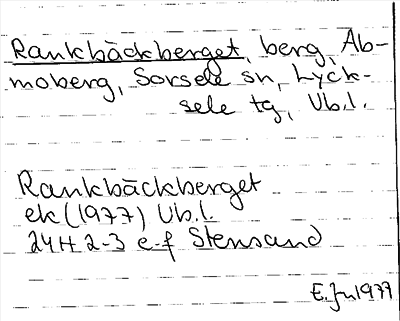 Rankbäckberget, berg, Ab-
moberg, Sorsele sn, Lyck-
sele tg, Vb.l.
Rankbäckberget
ek (1977) Vb.l.
24H 2-3 e-f Stensand
E. Ju 1977